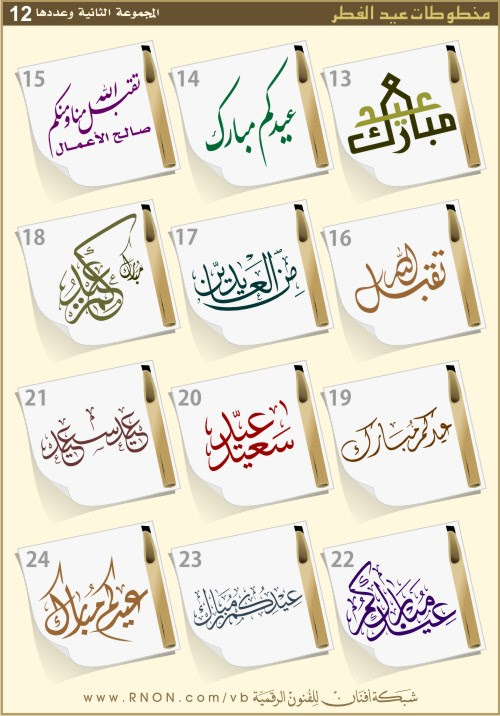 مخطوطات عيد الفطر
المجموعة الثانية وعددها 12
13
عيد
مبارك
14
عيدكم مبارك
15
تقبل الله منا ومنكم
صالح الأعمال
16
تقبل الله
17
من العايدين
18
عيدكم
مبارك
19
عيدكم مبارك
20
عيد
سعيد
21
عيد سعيد
22
عيدكم مبارك
23
عيدكم مبارك
24
عيدكم مبارك
شبكة افنان للفنون الرقمية
www.RNON.com/vb